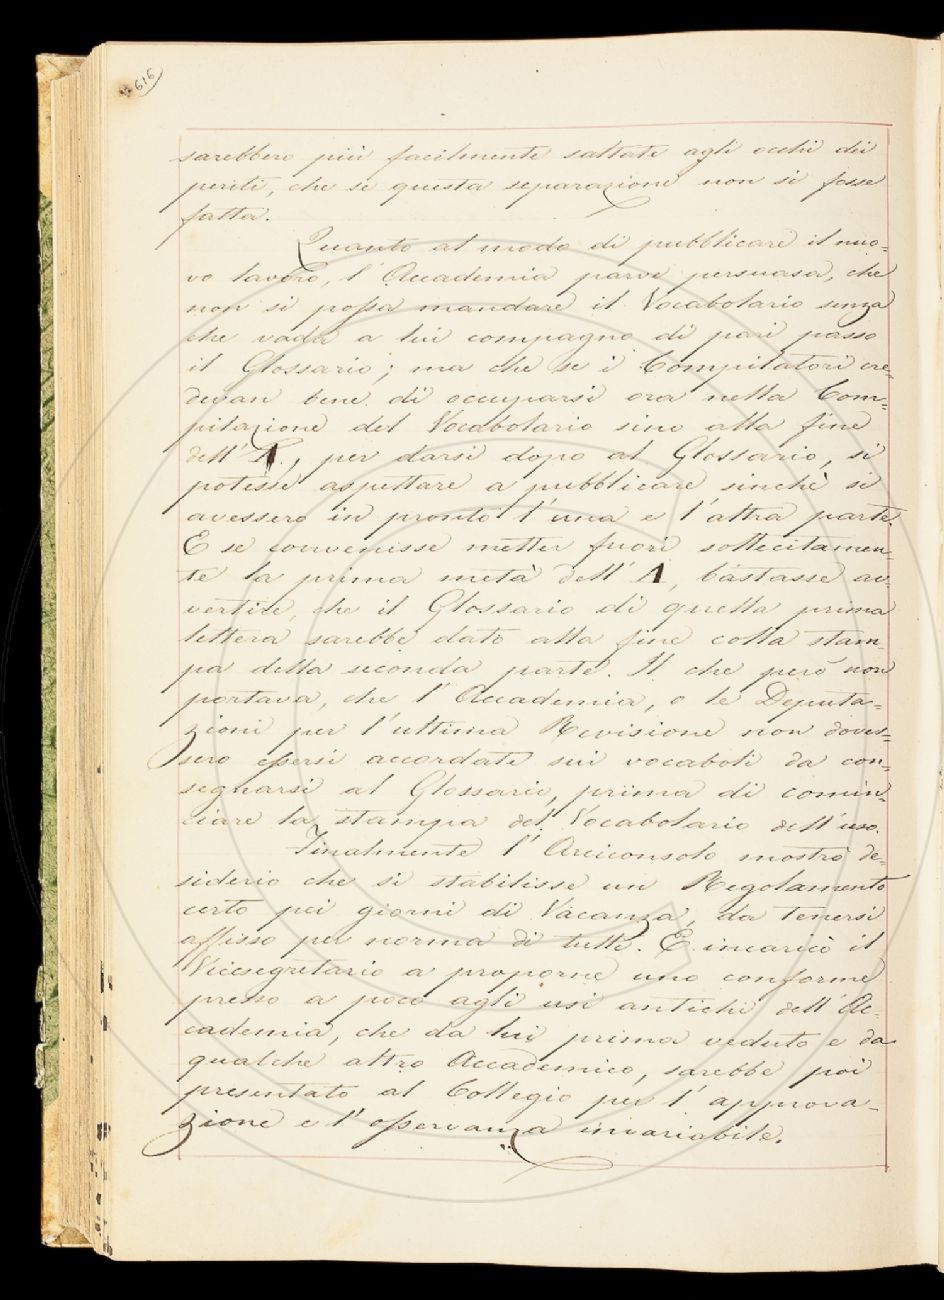 616
sarebbero più facilmente saltate agli occhi dei
periti, che se questa separazione non si fosse
fatta.
Quanto al modo di pubblicare il nuo-
vo lavoro, l'Accademia parve persuasa, che
non si possa mandare il Vocabolario senza
che vada a lui compagno di pari passo
il Glossario; ma che se i Compilatori cre-
devan bene di occuparsi ora nella Com-
pilazione del Vocabolario sino alla fine
dell'A, per darsi dopo al Glossario, si
potesse aspettare a pubblicare sinchè si
avessero in pronto l'una e l'altra parte.
E se convenisse metter fuori sollecitamen-
te la prima metà dell'A, bastasse av-
vertire, che il Glossario di quella prima
lettera sarebbe dato alla fine colla stam-
pa della seconda parte. Il che però non
portava, che l'Accademia, o le Deputa-
zioni per l'ultima Revisione non doves-
sero essersi accordate sui vocaboli da con-
segnarsi al Glossario, prima di comin-
ciare la stampa del Vocabolario dell'uso.
Finalmente l'Arciconsolo mostrò de-
siderio che si stabilisse un Regolamento
certo pei giorni di Vacanza, da tenersi
affisso per norma di tutti. E incaricò il
Vicesegretario a proporne uno conforme
presso a poco agli usi antichi dell'Ac-
cademia, che da lui prima veduto e da
qualche altro Accademico, sarebbe poi
presentato al Collegio per l'approva-
zione e l'osservanza invariabile.